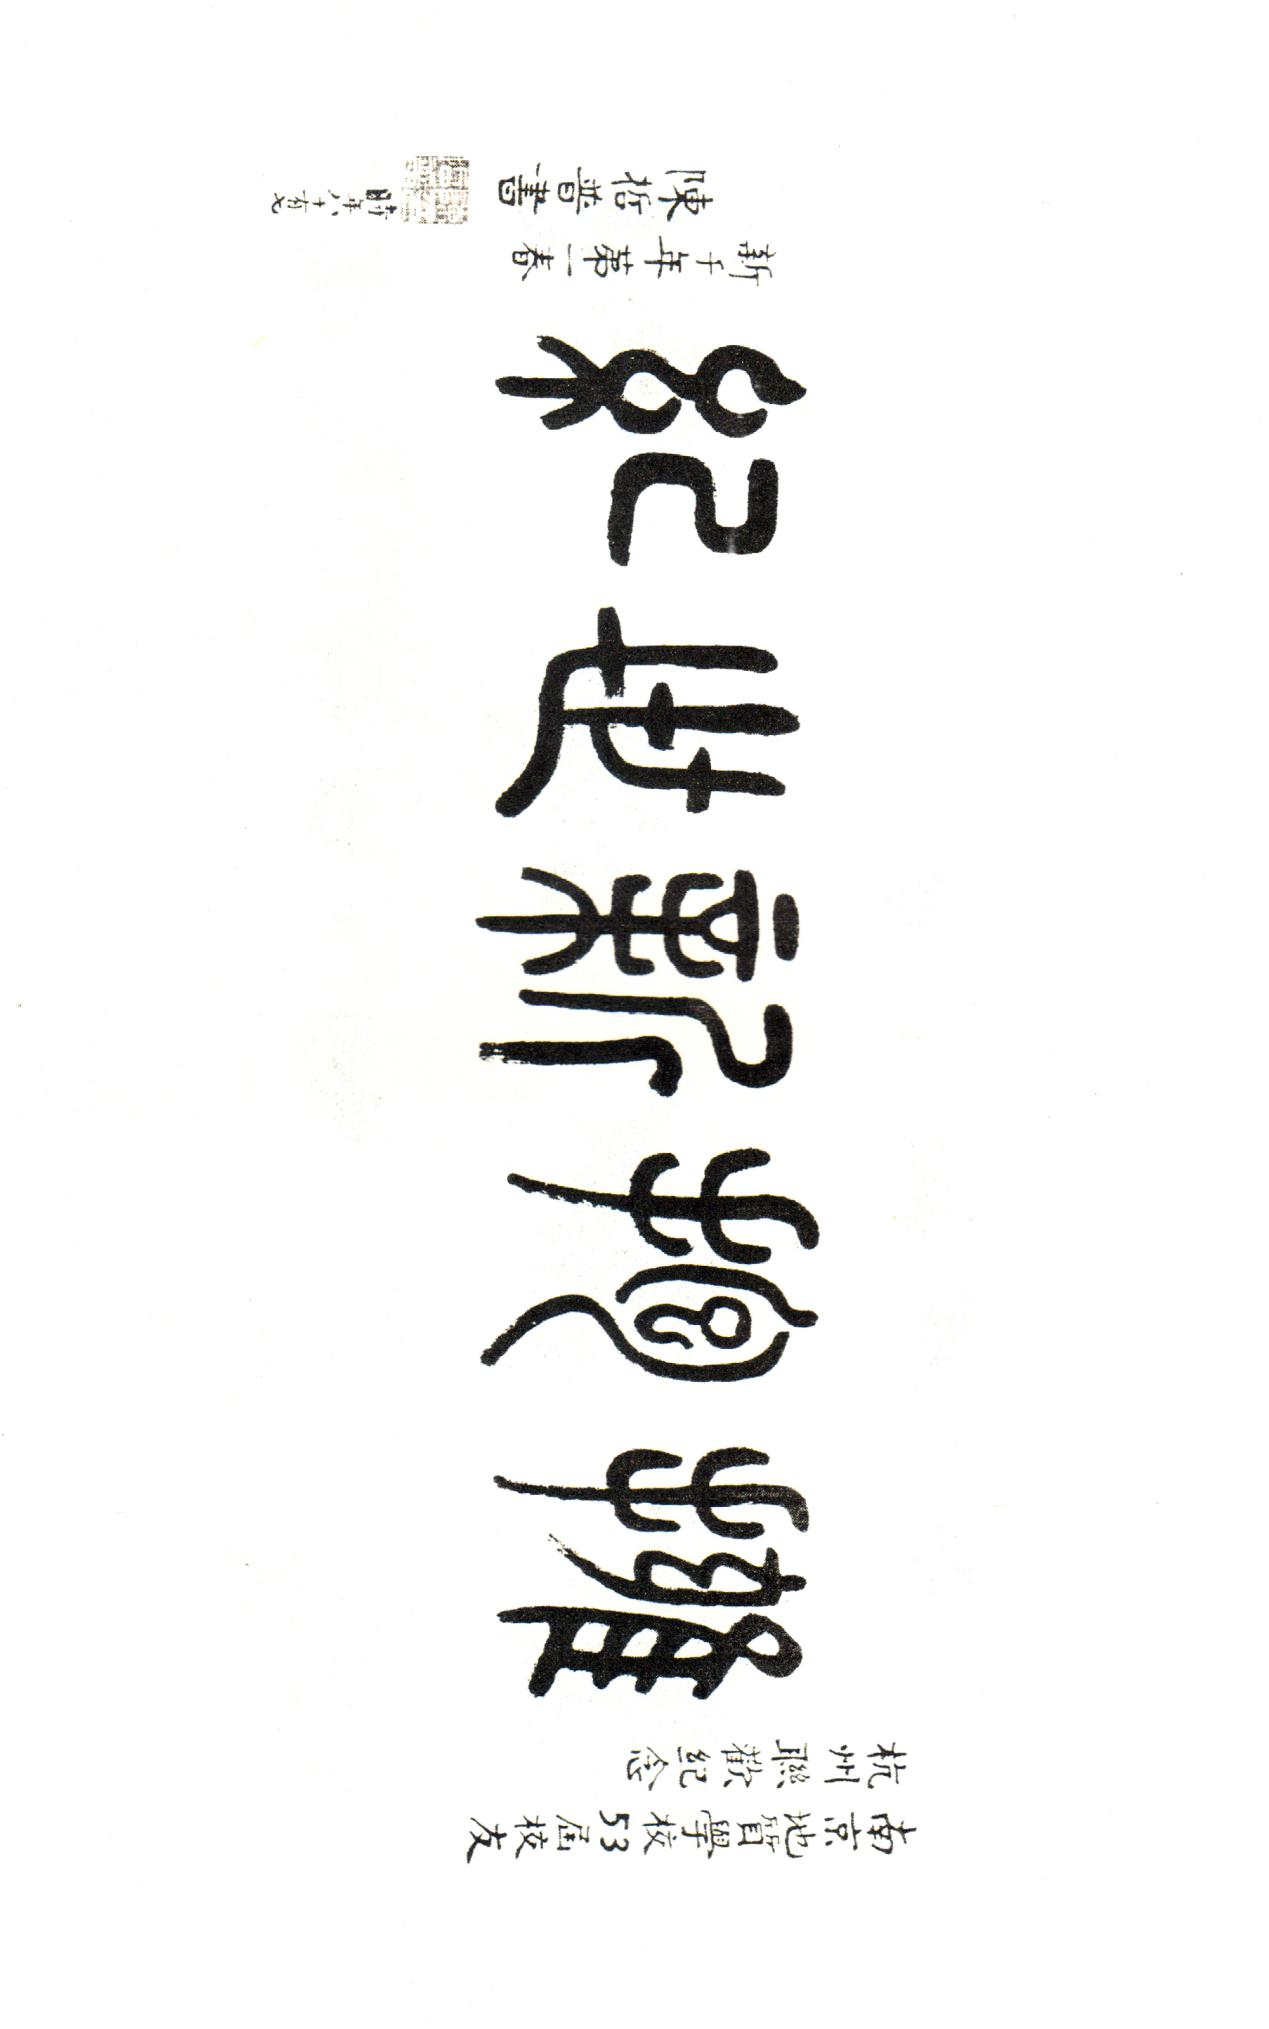 南京地質學校53屆校友
杭州聯歡紀念
擁抱新世紀
新千年第一春
陳哲普書
時年八十有七